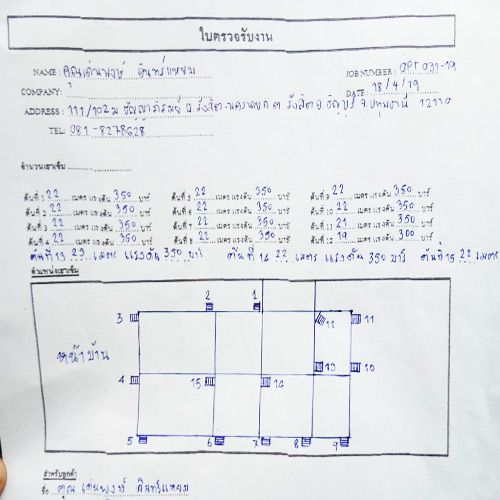 ใบตรวจรับงาน
NAME : คุณเด่นพงษ์ อินทร์แหยม JOB NUMBER : OPT 031-19
COMPANY: DATE : 18/4/19
ADDRESS : 111/102 ม. ธัญญาภิรมย์ ถ. รังสิต-นครนายก ต. รังสิต อ. ธัญบุรี จ. ปทุมธานี 12110
TEL: 081-8278628
จำนวนเสาเข็ม
ต้นที่ 1 22 เมตร แรงดัน 350 บาร์ ต้นที่ 5 22 เมตร แรงดัน 350 บาร์ ต้นที่ 9 22 เมตร แรงดัน 350 บาร์
ต้นที่ 2 22 เมตร แรงดัน 350 บาร์ ต้นที่ 6 22 เมตร แรงดัน 350 บาร์ ต้นที่ 10 22 เมตร แรงดัน 350 บาร์
ต้นที่ 3 22 เมตร แรงดัน 350 บาร์ ต้นที่ 7 22 เมตร แรงดัน 350 บาร์ ต้นที่ 11 21 เมตร แรงดัน 350 บาร์
ต้นที่ 4 22 เมตร แรงดัน 350 บาร์ ต้นที่ 8 22 เมตร แรงดัน 350 บาร์ ต้นที่ 12 19 เมตร แรงดัน 300 บาร์
ต้นที่ 13 23 เมตร แรงดัน 350 บาร์ ต้นที่ 14 22 เมตร แรงดัน 350 บาร์ ต้นที่ 15 22 เมตร
ตำแหน่งเสาเข็ม
2 1
3 11
หน้าบ้าน
13 10
4 15
5 6 7 8 9
สำหรับลูกค้า
ชื่อ คุณ เด่นพงษ์ อินทร์แหยม